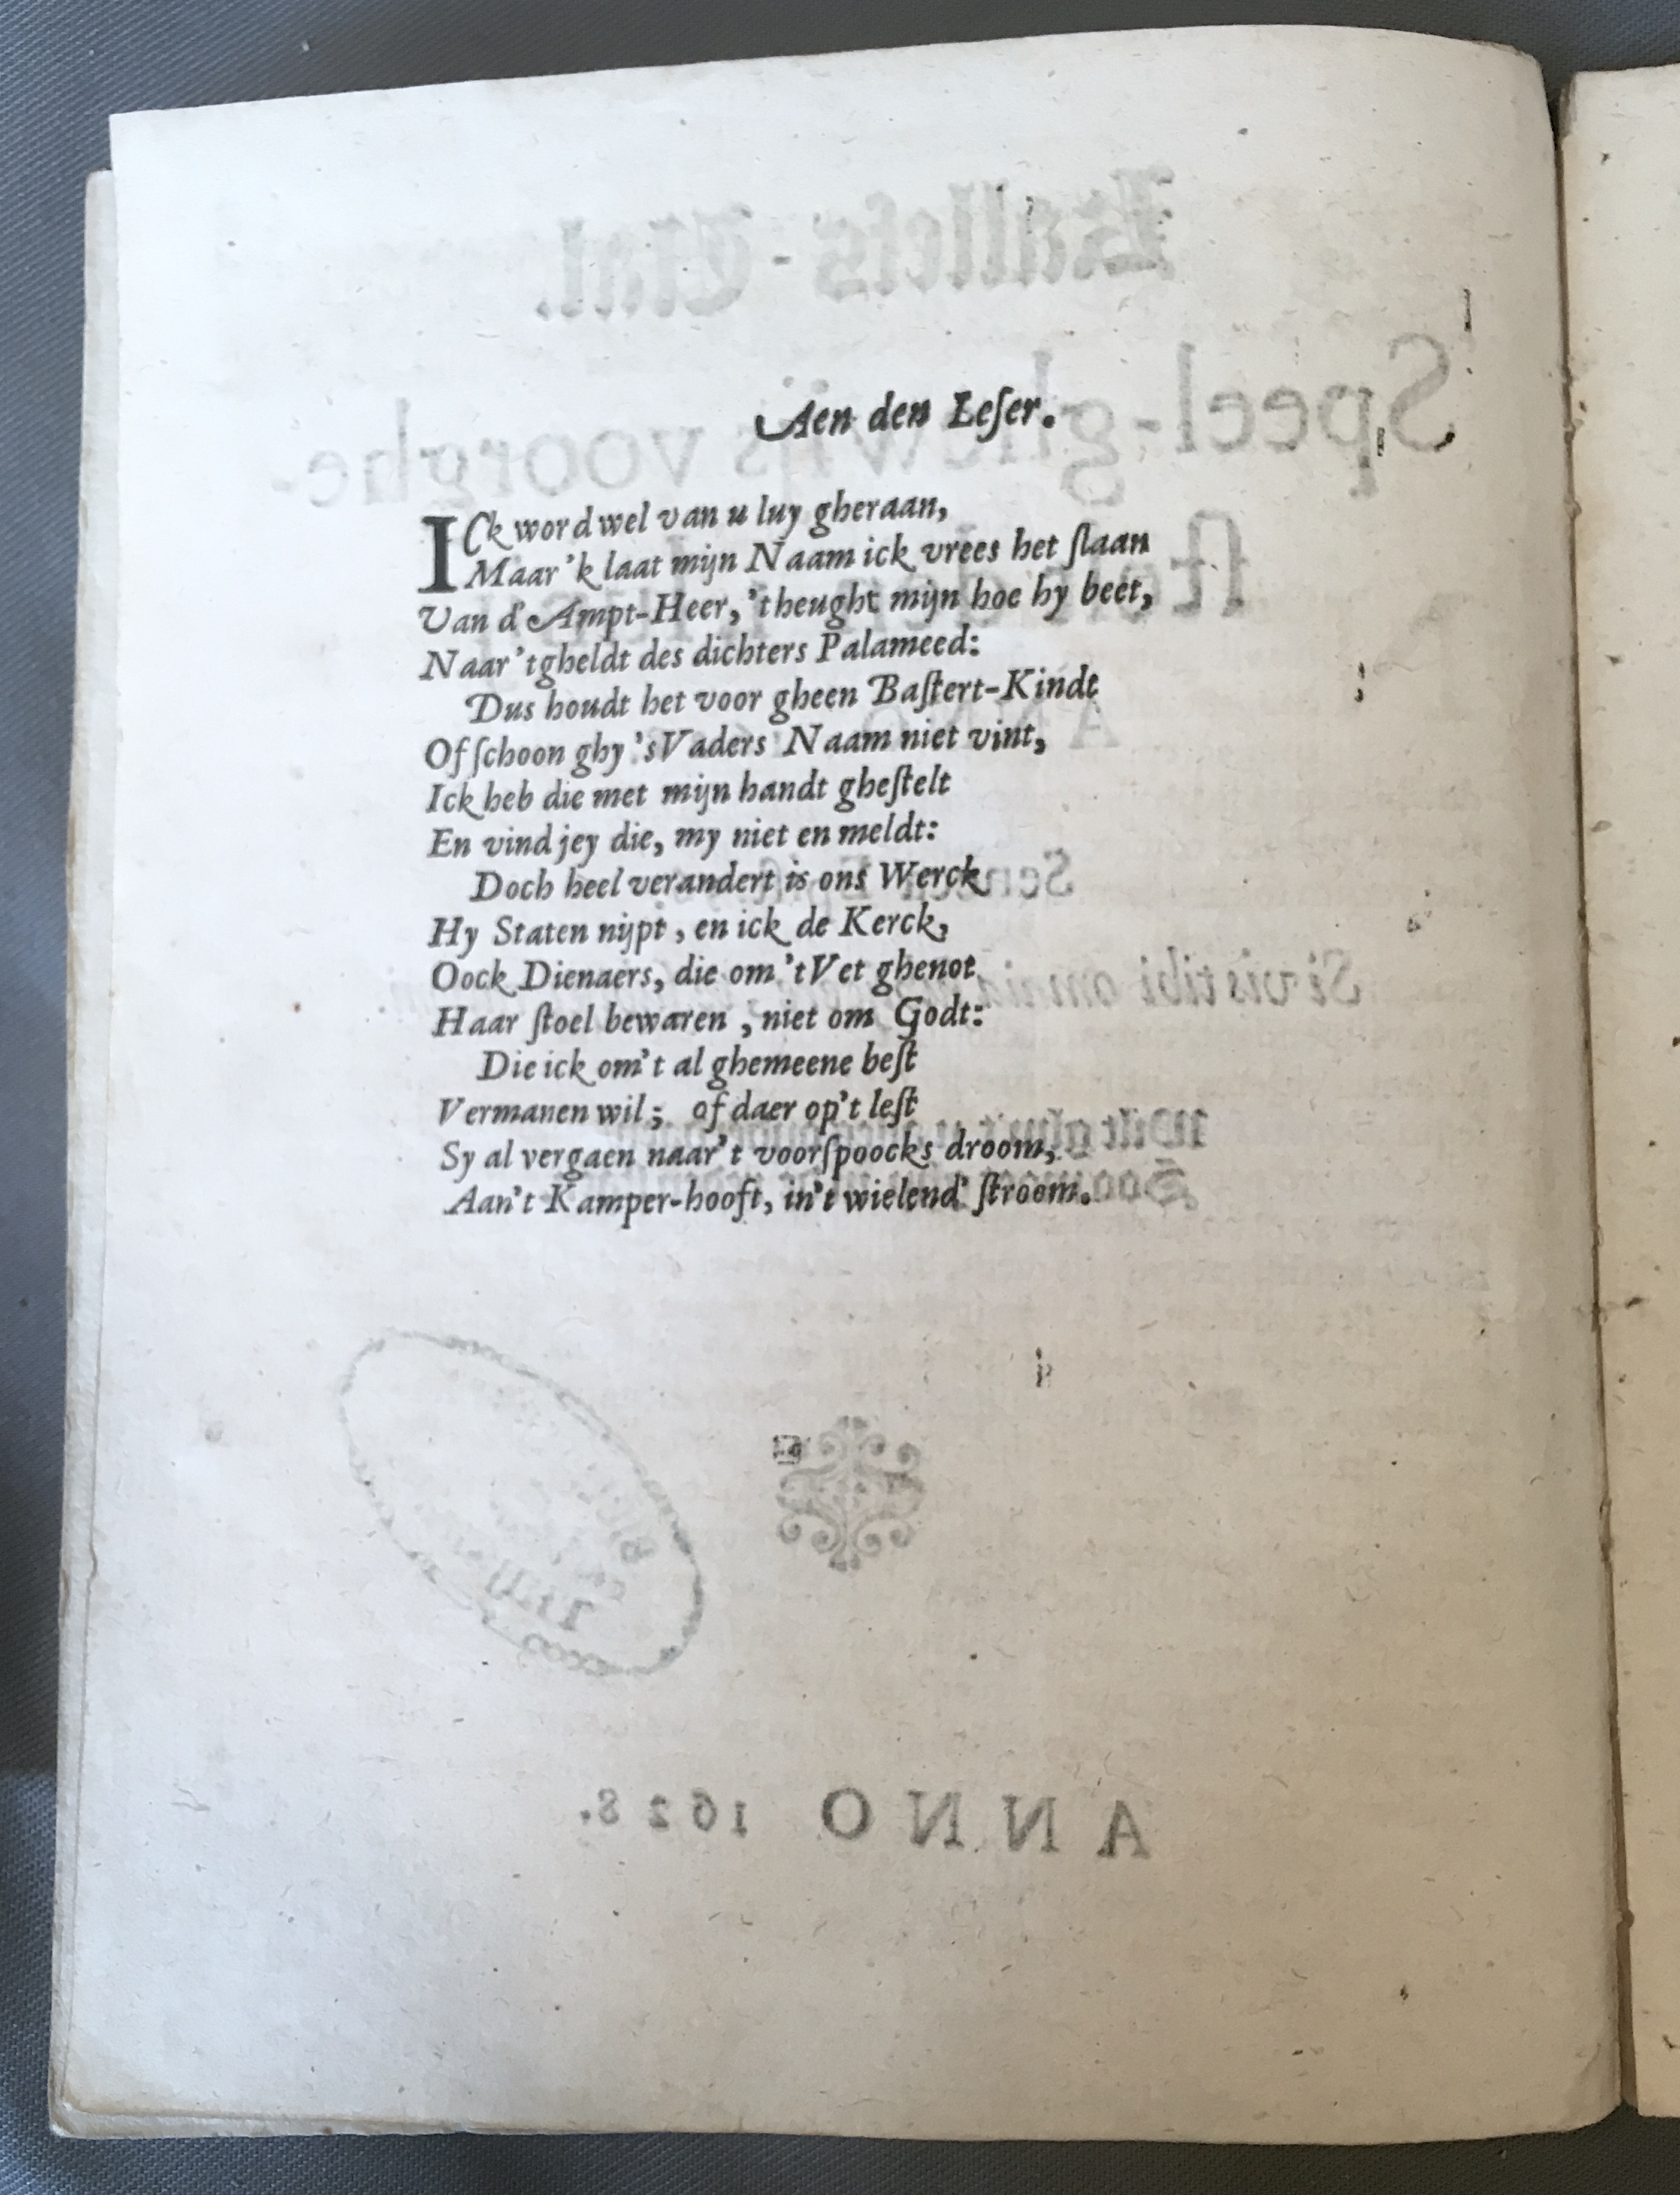 Aen den Leſer.
ICk word wel van u luy gheraan,
Maar 'k laat mijn Naam ick vrees het ſlaan
Van d' Ampt-Heer, 't heught mijn hoe hy beet,
Naar 't gheldt des dichters Palameed:
Dus houdt het voor gheen Baſtert-Kindt
Of ſchoon ghy 's Vaders Naam niet vint,
Ick heb die met mijn handt gheſtelt
En vind jey die, my niet en meldt:
Doch heel verandert is onſ Werck
Hy Staten nijpt, en ick de Kerck,
Oock Dienaers, die om 't Vet ghenot
Haar ſtoel bewaren, niet om Godt:
Die ick om't al ghemeene beſt
Vermanen wil; of daer op't leſt
Sy al vergaen naar't voorſpoocks droom,
Aan't Kamper-hooft, in't wielend' ſtroom.
ANNO 1628.